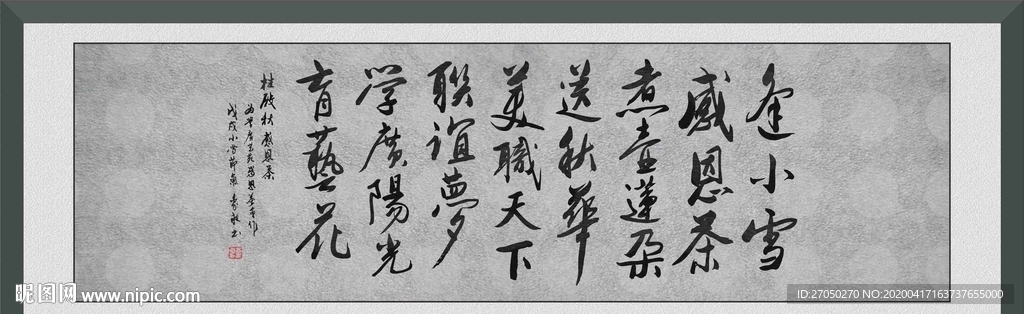 逢小雪
感恩茶
煮壺蓮朵
送秋華
美職天下
聯誼夢
学廣陽光
育藝花
桂殿秋 感恩茶
戊戌小雪節氣
昵图网 www.nipic.com
ID:27050270 NO:20200417163737655000